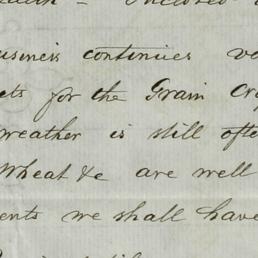 Enclosed
usiness continues ve
ets for the Grain Cro
weather is still ofte
Wheat &c are well
ents we shall have